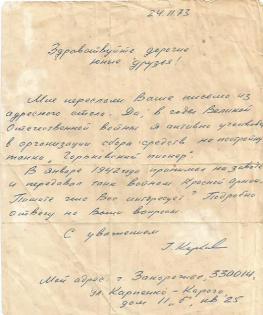 24.11.73
Здравствуйте дорогие
юные друзья!
Мне переслали Ваше письмо из
адресного стола. Да, в годы Великой
Отечественной войны я активно участвовал
в организации сбора средств на постройку
танка „Горьковский пионер".
В январе 1942 года принимал на заводе
и передавал танк воинам Красной Армии.
Пишите что Вас интересует? Подробно
отвечу на Ваши вопросы
С уважением
Мой адрес г Запорожье, 330014,
ул. Карпенко-Карого
дом 11 „б", кв 25